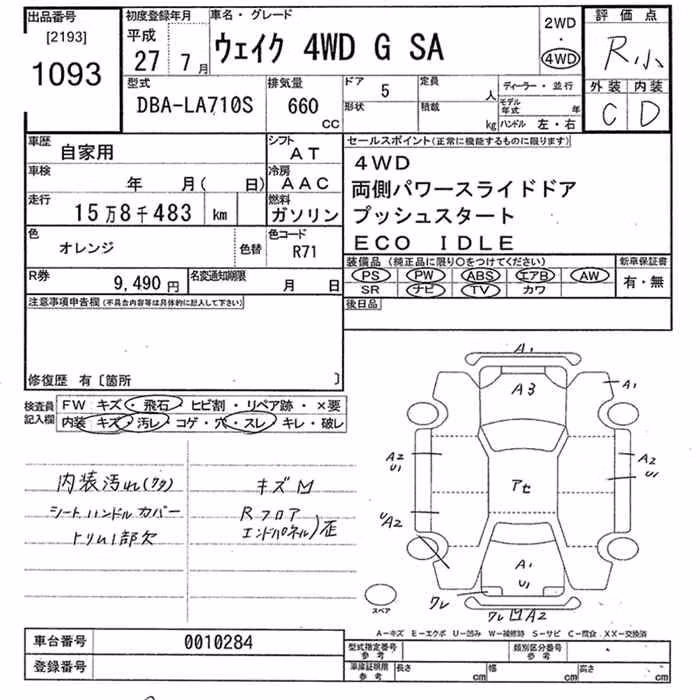 出品番号
[2193]
1093
初度登録年月
平成
27年 7月
車名・グレード
ウェイク 4WD G SA
2WD
・
4WD
評価点
R小
外装 内装
C D
型式
DBA-LA710S
排気量
660
CC
ドア 5
形状
定員 人
積載 kg
ディーラー・並行
モデル年式 年
ハンドル 左・右
車歴
自家用
シフト
AT
車検
年 月( 日)
冷房
AAC
走行
15万8千483 km
燃料
ガソリン
色
オレンジ
色替
色コード
R71
R券
9,490円
名変通知期限
月 日
セールスポイント(正常に機能するものに限ります)
4WD
両側パワースライドドア
プッシュスタート
ECO IDLE
装備品(純正品に限り○をつけてください)
PS PW ABS エアB AW
SR ナビ TV カワ
新車保証書
有・無
後日品
注意事項申告欄(不具合内容等は具体的に記入して下さい)
修復歴 有〔箇所 〕
検査員記入欄
FW キズ・飛石・ヒビ割・リペア跡・×要
内装 キズ・汚レ・コゲ・穴・スレ・キレ・破レ
内装汚れ(クタ)
シートハンドルカバー
トリム1部欠
キズ凹
Rフロア
エンドパネル)歪
A1
A3
A1
A2
U1
アセ
A2
U1
UA2
A1
U1
ワレ
ワレ凹A2
スペア
A-キズ E-エクボ U-凹み W-補修跡 S-サビ C-腐食 XX-交換済
車台番号
0010284
登録番号
型式指定番号
参考
類別区分番号
参考
車庫証明用
参考
長さ cm
幅 cm
高さ cm